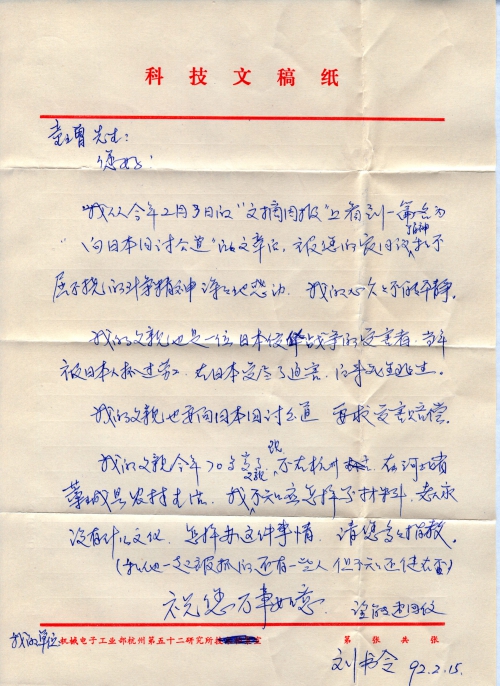 科技文稿纸
童增先生:
您好!
我从今年2月3日的"文摘周报"上看到一篇名为
"向日本国讨公道"的文章后,被您的爱国精神和不
屈不挠的斗争精神深深地感动,我的心久久不能平静。
我的父亲也是一位日本侵华战争的受害者,当年
被日本人抓过劳工,在日本受尽了迫害,
我的父亲也要向日本国讨公道 要求受害赔偿。
我的父亲今年70多岁了,现不在杭州 在河北省
藁城县农村生活。我不知应怎样写材料,老人家
没有什么文化,怎样办这件事情,请您多多指教。
(和他一起被抓的还有一些人 但不知还健在否)
祝您万事如意 望能速回信
我的单位 机械电子工业部杭州第五十二研究所 第 张 共 张
刘书令 92.2.15.